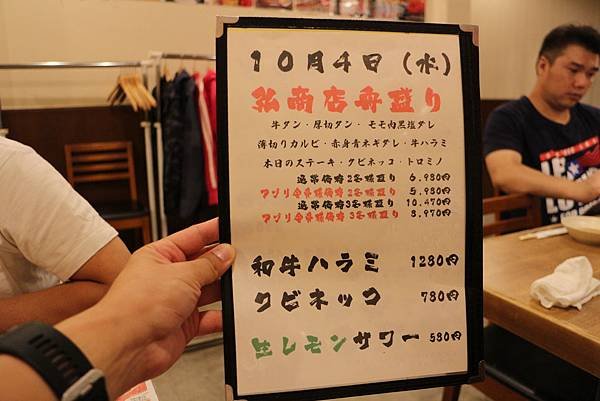 10月4日(水)
弘商店舟盛り
牛タン・厚切タン・モモ肉黒塩ダレ
薄切りカルビ・赤身青ネギダレ・牛ハラミ
本日のステーキ・クビネッコ・トロミノ
通常価格2名様盛り 6.980円
アプリ会員様価格 2名様盛り 5.980円
通常価格3名様盛り 10.470円
アプリ会員様価格 3名様盛り 8.970円
和牛ハラミ 1280円
クビネッコ 780円
生レモンサワー 580円